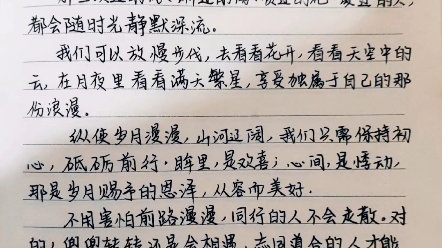 都会随时光静默深流。
我们可以放慢步伐,去看看花开,看看天空中的
云,在月夜里看看满天繁星,享受独属于自己的那
份浪漫。
纵使岁月漫漫,山河辽阔,我们只需保持初
心,砥砺前行。眸里,是欢喜;心间,是悸动,
那是岁月赐予的恩泽,从容而美好.
不用害怕前路漫漫,同行的人不会走散。对
的人兜兜转转还是会相遇,志同道合的人才能